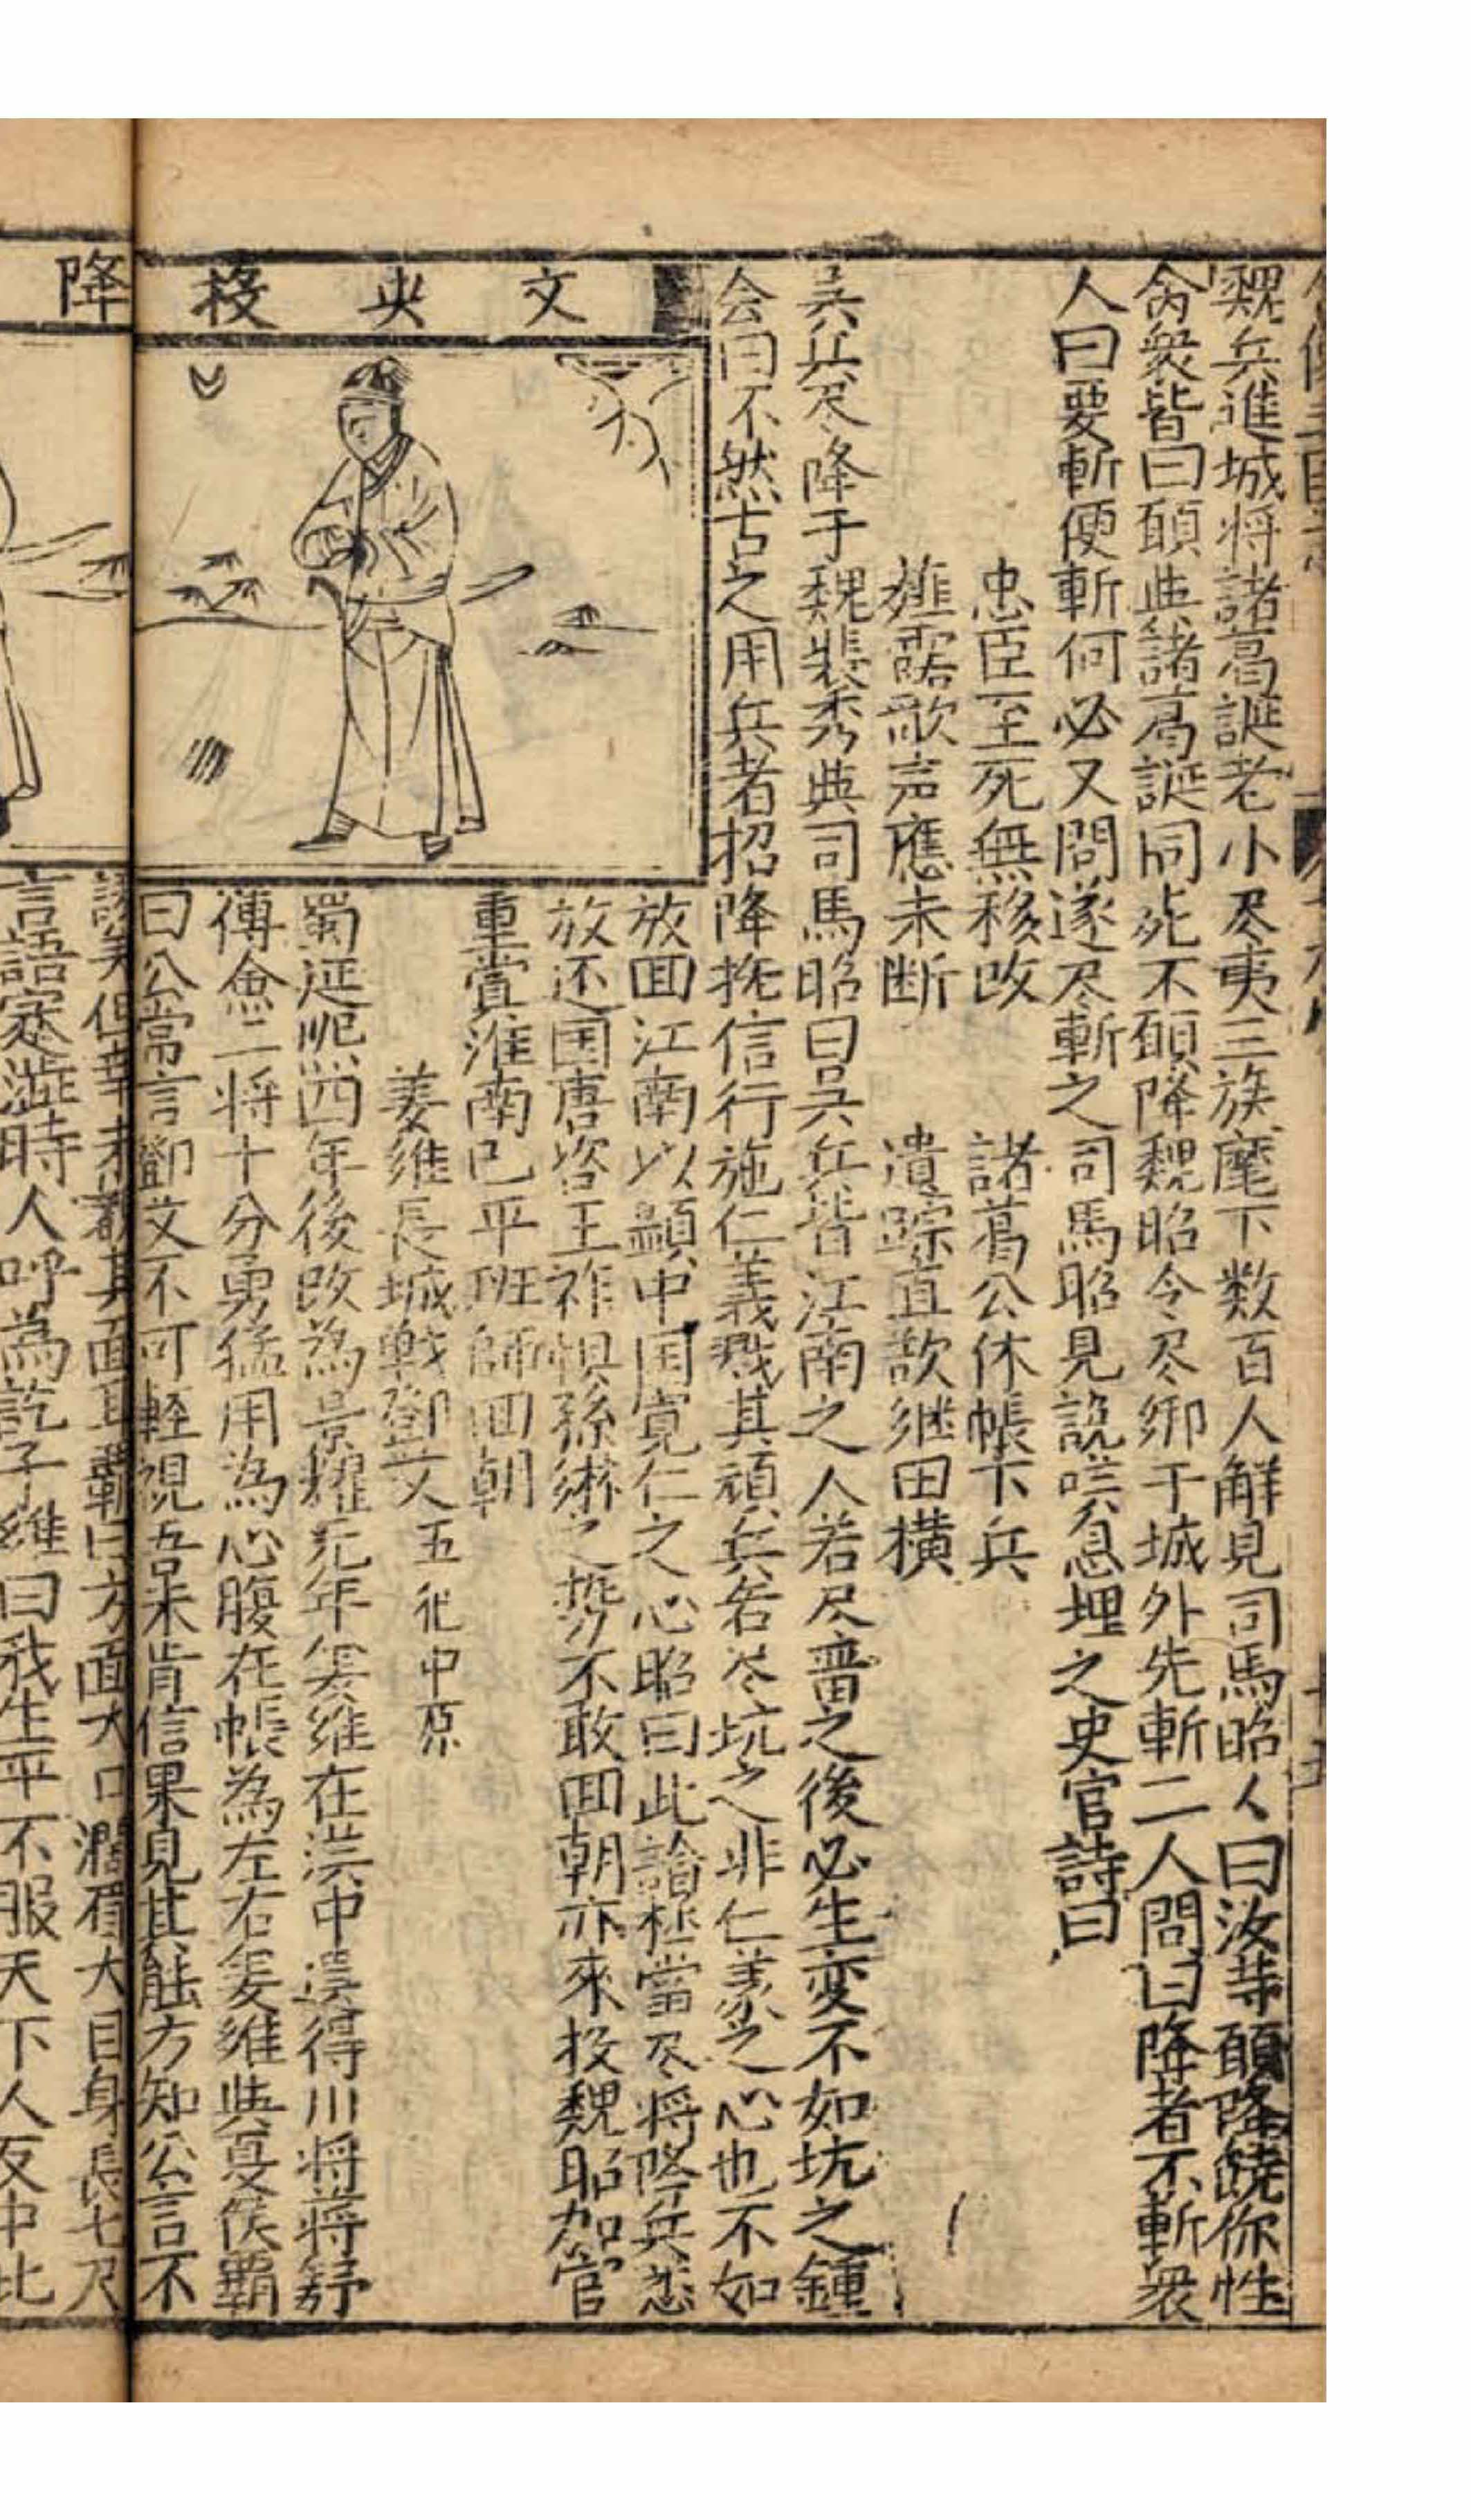 魏兵進城将諸葛誕老小尽夷三族麾下数百人觧見司馬昭人曰汝等願降饒你性
命衆皆曰願與諸葛誕同死不願降魏昭令尽綁于城外先斬二人問曰降者不斬衆
人曰要斬便斬何必又問遂尽斬之司馬昭見說嘆息埋之史官詩曰
忠臣至死無移改　諸葛公休帳下兵
薤露歌声應未断　遺踪直欲継田横
吴兵尽降于魏裴秀與司馬昭曰吴兵皆江南之人若尽畱之後必生变不如坑之鍾
会曰不然古之用兵者招降撫信行施仁義戮其頑兵若尽坑之非仁義之心也不如
放囬江南以顯中国寬仁之心昭曰此論極當尽将降兵悉
放还国唐咨王祚惧孫綝之势不敢囬朝亦來投魏昭加官
重賞淮南已平班師囬朝
姜維長城戰鄧艾 五犯中原
蜀延熈四年後改為景耀元年姜維在漢中選得川将蒋舒
傅僉二将十分勇猛用為心腹在帳為左右姜維與夏侯霸
曰公常言鄧艾不可輕視吾未肯信果見其能方知公言不
謬矣但幸未覩其面耳覇曰方面大口濶眉大目身長七尺
言語寒澁時人呼為訖子維曰我生平不服天下人反中比
文央投降